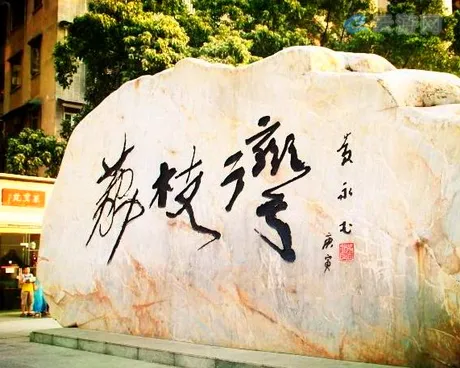 荔枝灣
黄永玉
庚寅